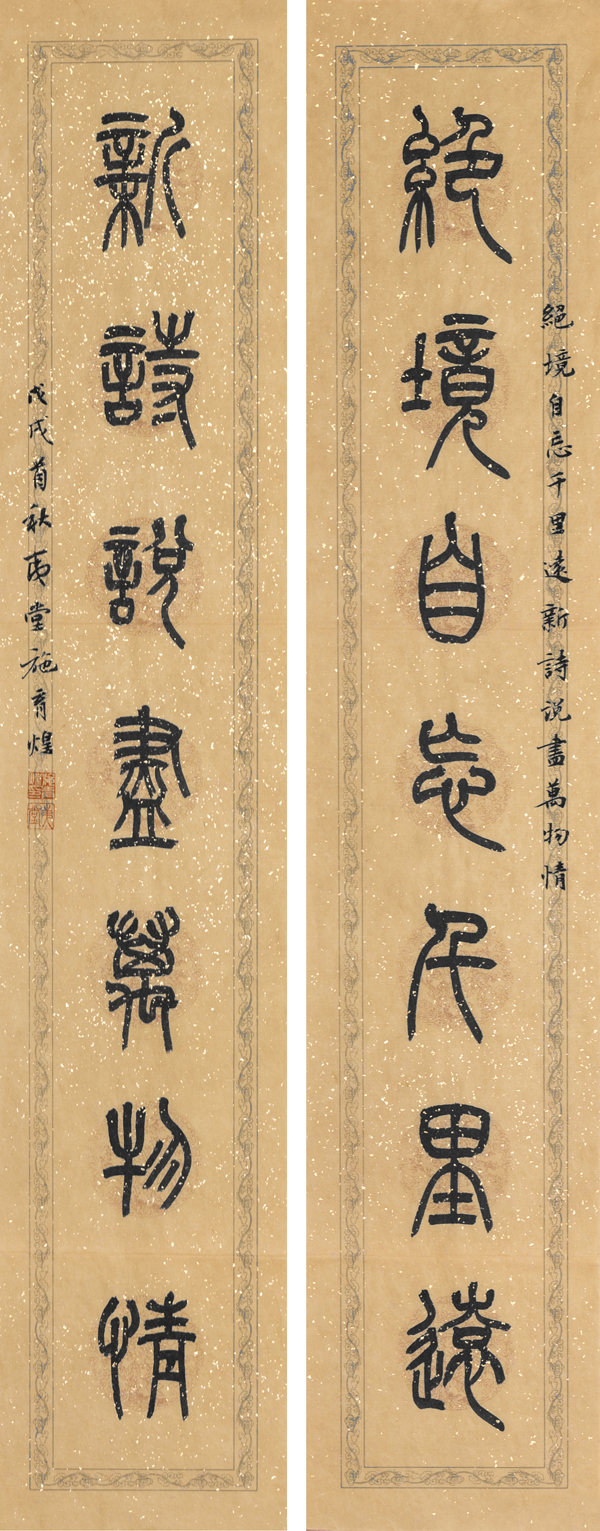 絕境自忘千里遠新詩說盡萬物情
絕境自忘千里遠
新詩說盡萬物情
戊戌首秋夷堂施育煌